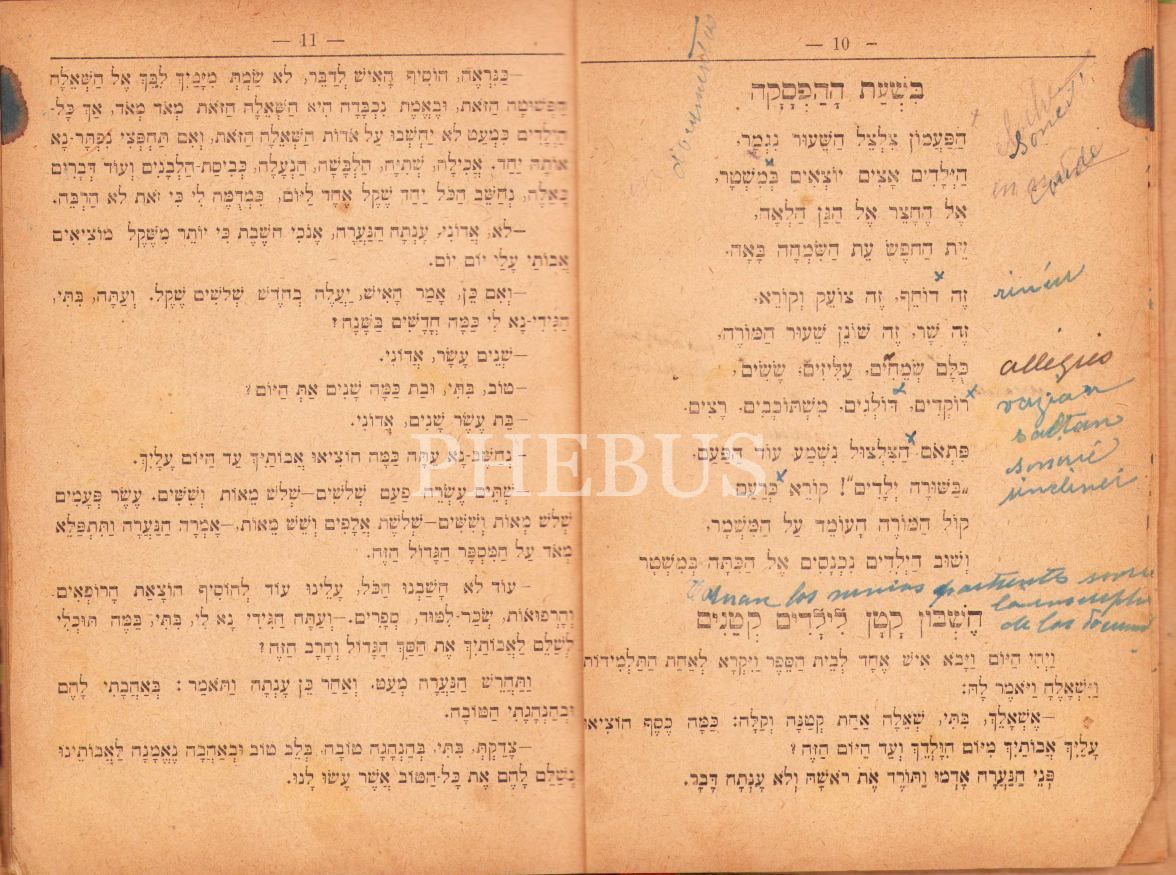 — 10 –
בִּשְׁעַת הַהַפְסָקָה
הַפַּעֲמוֹן צִלְצֵל הַשִּׁעוּר נִגְמַר,
הַיְלָדִים אָצִים יוֹצְאִים בְּמִשְׁטָר,
אֶל הֶחָצֵר אֶל הַגַּן הָלְאָה,
עֵת הַשִּׂמְחָה בָּאָה.
זֶה דוֹחֵף, זֶה צוֹעֵק וְקוֹרֵא.
זֶה שָׁר, זֶה שׁוֹנֵן שִׁעוּר הַמּוֹרֶה,
כֻּלָּם שְׂמֵחִים, עַלִּיזִים, שָׂשִׂים,
רוֹקְדִים, דּוֹלְגִים, מִשְׁתּוֹבְבִים, רָצִים.
פִּתְאֹם הַצִּלְצוּל נִשְׁמַע עוֹד הַפַּעַם.
„בַּשּׁוּרָה יְלָדִים"! קוֹרֵא כְּרַעַם
קוֹל הַמּוֹרֶה הָעוֹמֵד עַל הַמִּשְׁמָר,
וְשׁוּב הַיְלָדִים נִכְנָסִים אֶל הַכִּתָּה בְּמִשְׁטָר
חֶשְׁבּוֹן קָטָן לִילָדִים קְטַנִּים
וַיְהִי הַיּוֹם וַיָּבֹא אִישׁ אֶחָד לְבֵית הַסֵּפֶר וַיִּקְרָא לְאַחַת הַתַּלְמִידוֹת
וַיִּשְׁאָלֶהָ וַיֹּאמֶר לָהּ:
—אֶשְׁאָלֵךְ, בִּתִּי, שְׁאֵלָה אַחַת קְטַנָּה וְקַלָּה: כַּמָּה כֶּסֶף הוֹצִיאוּ
עָלַיִךְ אֲבוֹתַיִךְ מִיּוֹם הִוָּלְדֵךְ וְעַד הַיּוֹם הַזֶּה?
פְּנֵי הַנַּעֲרָה אָדְמוּ וַתּוֹרֶד אֶת רֹאשָׁהּ וְלֹא עָנְתָה דָּבָר.
rinién
allegres
saltan
— 11 —
—כַּנִּרְאֶה, הוֹסִיף הָאִישׁ לְדַבֵּר, לֹא שַׂמְתְּ מִיָּמַיִךְ לִבֵּךְ אֶל הַשְּׁאֵלָה
הַפְּשׁוּטָה הַזֹּאת, וּבֶאֱמֶת נִכְבָּדָה הִיא הַשְּׁאֵלָה הַזֹּאת מְאֹד מְאֹד, אַךְ כָּל-
הַיְלָדִים כִּמְעַט לֹא יַחְשְׁבוּ עַל אֹדוֹת הַשְּׁאֵלָה הַזֹּאת, וְאִם תַּחְפְּצִי נִפְתֹּר-נָא
אוֹתָהּ יַחַד. אֲכִילָה, שְׁתִיָּה, הַלְבָּשָׁה, הַנְעָלָה, כְּבִיסַת-הַלְּבָנִים וְעוֹד דְּבָרִים
כָּאֵלֶּה, נַחְשֹׁב הַכֹּל יַחַד שֶׁקֶל אֶחָד לַיּוֹם, כִּמְדֻמֶּה לִי כִּי זֹאת לֹא הַרְבֵּה.
—לֹא, אֲדוֹנִי, עָנְתָה הַנַּעֲרָה, אָנֹכִי חוֹשֶׁבֶת כִּי יוֹתֵר מִשֶּׁקֶל מוֹצִיאִים
אֲבוֹתַי עָלַי יוֹם יוֹם.
—וְאִם כֵּן, אָמַר הָאִישׁ, יַעֲלֶה בְּחֹדֶשׁ שְׁלשִׁים שֶׁקֶל. וְעַתָּה, בִּתִּי,
הַגִּידִי-נָא לִי כַּמָּה חֳדָשִׁים בַּשָּׁנָה?
—שְׁנֵים עָשָׂר, אֲדוֹנִי.
—טוֹב, בִּתִּי, וּבַת כַּמָּה שָׁנִים אַתְּ הַיּוֹם?
—בַּת עֶשֶׂר שָׁנִים, אֲדוֹנִי.
—נַחְשֹׁב-נָא עַתָּה כַּמָּה הוֹצִיאוּ אֲבוֹתַיִךְ עַד הַיּוֹם עָלָיִךְ.
—שְׁתֵּים עֶשְׂרֵה פַּעַם שְׁלשִׁים—שְׁלשׁ מֵאוֹת וְשִׁשִּׁים. עֶשֶׂר פְּעָמִים
שְׁלשׁ מֵאוֹת וְשִׁשִּׁים—שְׁלשֶׁת אֲלָפִים וְשֵׁשׁ מֵאוֹת,—אָמְרָה הַנַּעֲרָה וַתִּתְפַּלֵּא
מְאֹד עַל הַמִּסְפָּר הַגָּדוֹל הַזֶּה.
—עוֹד לֹא חָשַׁבְנוּ הַכֹּל, עָלֵינוּ עוֹד לְהוֹסִיף הוֹצָאַת הָרוֹפְאִים
וְהָרְפוּאוֹת, שְׂכַר-לִמּוּד, סְפָרִים.—וְעַתָּה הַגִּידִי נָא לִי, בִּתִּי, בַּמֶּה תּוּכְלִי
לְשַׁלֵּם לַאֲבוֹתַיִךְ אֶת הַסַּךְ הַגָּדוֹל וְהָרָב הַזֶּה?
וַתַּחֲרֵשׁ הַנַּעֲרָה מְעַט. וְאַחַר כֵּן עָנְתָה וַתֹּאמַר: בְּאַהֲבָתִי לָהֶם
וּבְהַנְהָגָתִי הַטּוֹבָה.
—צָדַקְתְּ, בִּתִּי, בְּהַנְהָגָה טוֹבָה, בְּלֵב טוֹב וּבְאַהֲבָה נֶאֱמָנָה לַאֲבוֹתֵינוּ
נְשַׁלֵּם לָהֶם אֶת כָּל-הַטּוֹב אֲשֶׁר עָשׂוּ לָנוּ.
PHEBUS